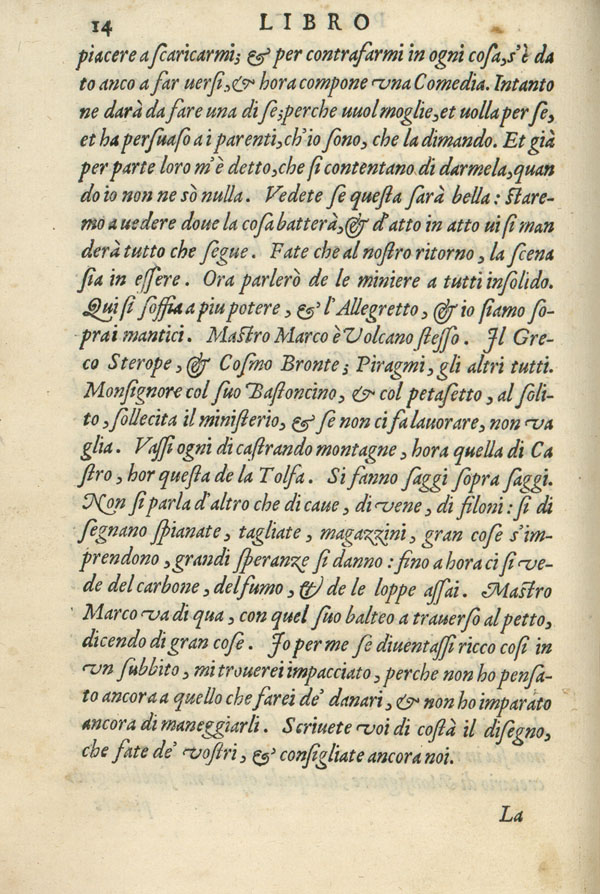 14 LIBRO
piacere a ſcaricarmi; & per contrafarmi in ogni coſa, s'è da
to anco a far uerſi, & hora compone vna Comedia. Intanto
ne darà da fare una di ſe; perche uuol moglie, et uolla per ſe,
et ha perſuaſo a i parenti, ch'io ſono, che la dimando. Et già
per parte loro m'è detto, che ſi contentano di darmela, quan
do io non ne sò nulla. Vedete ſe queſta ſarà bella: ſtare-
mo a uedere doue la coſa batterà, & d'atto in atto ui ſi man
derà tutto che ſegue. Fate che al noſtro ritorno, la ſcena
ſia in eſſere. Ora parlerò de le miniere a tutti inſolido.
Qui ſi ſoffia a piu potere, & l'Allegretto, & io ſiamo ſo-
pra i mantici. Maſtro Marco è Volcano ſteſſo. Il Gre-
co Sterope, & Coſmo Bronte; Piragmi, gli altri tutti.
Monſignore col ſuo Baſtoncino, & col petaſetto, al ſoli-
to, ſollecita il miniſterio, & ſe non ci fa lauorare, non va
glia. Vaſſi ogni di caſtrando montagne, hora quella di Ca
ſtro, hor queſta de la Tolfa. Si fanno ſaggi ſopra ſaggi.
Non ſi parla d'altro che di caue, di vene, di filoni: ſi di
ſegnano ſpianate, tagliate, magazzini, gran coſe s'im-
prendono, grandi ſperanze ſi danno: fino a hora ci ſi ve-
de del carbone, del fumo, & de le loppe aſſai. Maſtro
Marco va di qua, con quel ſuo balteo a trauerſo al petto,
dicendo di gran coſe. Io per me ſe diuentaſſi ricco coſi in
vn ſubbito, mi trouerei impacciato, perche non ho penſa-
to ancora a quello che farei de' danari, & non ho imparato
ancora di maneggiarli. Scriuete voi di coſtà il diſegno,
che fate de' voſtri, & conſigliate ancora noi.
La